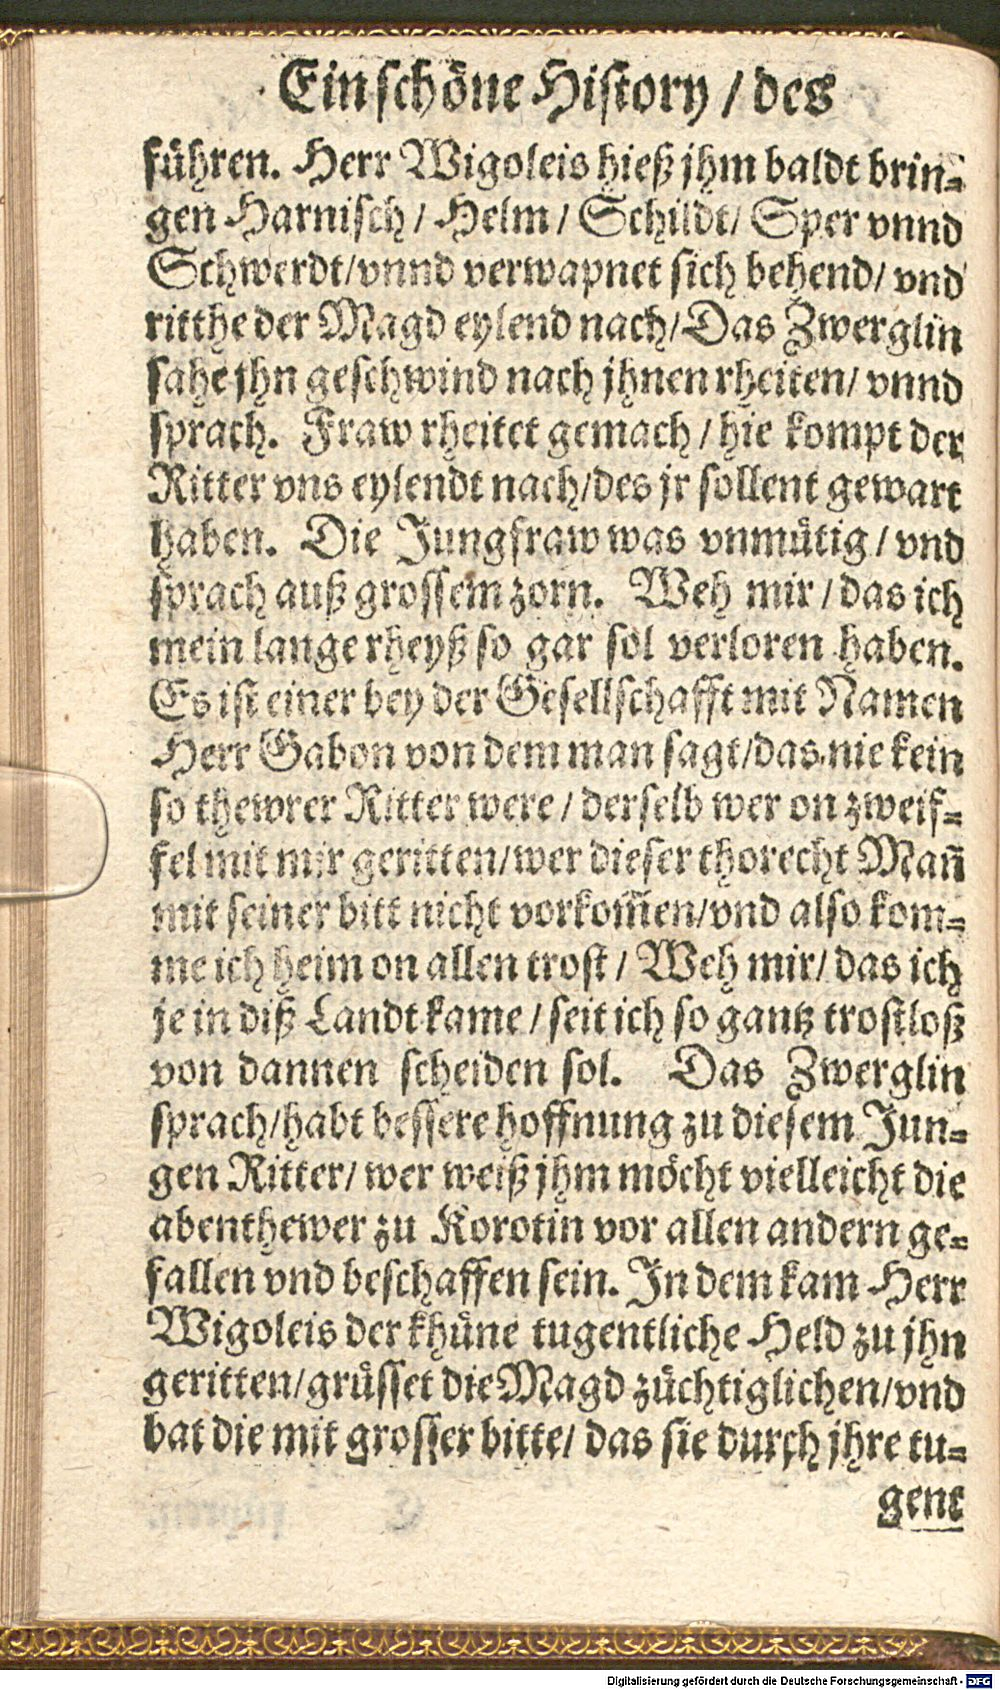 Ein schöne History / des
führen. Herr Wigoleis hieß jhm baldt brin-
gen Harnisch / Helm / Schildt / Sper vnnd
Schwerdt / vnnd verwapnet sich behend / vnd
ritthe der Magd eylend nach / Das Zwerglin
sahe jhn geschwind nach jhnen rheiten / vnnd
sprach. Fraw rheitet gemach / hie kompt der
Ritter vns eylendt nach / des jr sollent gewart
haben. Die Jungfraw was vnmütig / vnd
sprach auß grossem zorn. Weh mir / das ich
mein lange rheyß so gar sol verloren haben.
Es ist einer bey der Gesellschafft mit Namen
Herr Gabon von dem man sagt / das nie kein
so thewrer Ritter were / derselb wer on zweif-
fel mit mir geritten / wer dieser thorecht Mañ
mit seiner bitt nicht vorkom̃en / vnd also kom-
me ich heim on allen trost / Weh mir / das ich
je in diß Landt kame / seit ich so gantz trostloß
von dannen scheiden sol. Das Zwerglin
sprach / habt bessere hoffnung zu diesem Jun-
gen Ritter / wer weiß jhm möcht vielleicht die
abenthewer zu Korotin vor allen andern ge-
fallen vnd beschaffen sein. In dem kam Herr
Wigoleis der khüne tugentliche Held zu jhn
geritten / grüsset die Magd züchtiglichen / vnd
bat die mit grosser bitte / das sie durch jhre tu-
gent
Digitalisierung gefördert durch die Deutsche Forschungsgemeinschaft - DFG